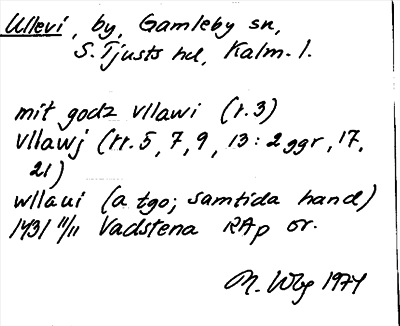 Ullevi, by, Gamleby sn,
S. Tjusts hd, Kalm. l.
mit godz vllawi (r. 3)
vllawj (rr. 5, 7, 9, 13: 2 ggr, 17,
21)
wllaui (a tgo; samtida hand)
1431 11/11 Vadstena RAp or.
M. Wbg 1974